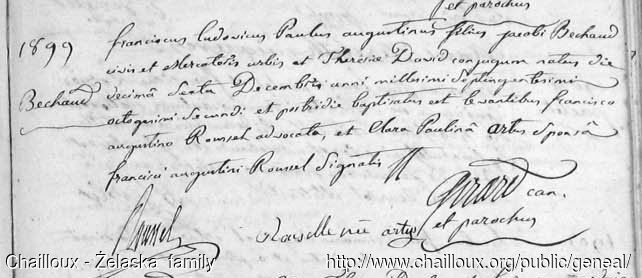 et parochus
1899 franciscus ludovicus Paulus augustinus filius jacobi Bechaud
civis et Mercatoris urbis et Theresie David conjugum natus die
Bechaud decimâ Sexta Decembris anni millesimi Septingentesimi
octogesimi Secundi et postridie baptisatus est levantibus francisco
augustino Roussel advocato, et Clara Paulinâ artus Sponsâ
francisci augustini Roussel Signatis //
Roussel Rousselle née artus Girard can.
et parochus
Chailloux - Żelaska family http://www.chailloux.org/public/geneal/